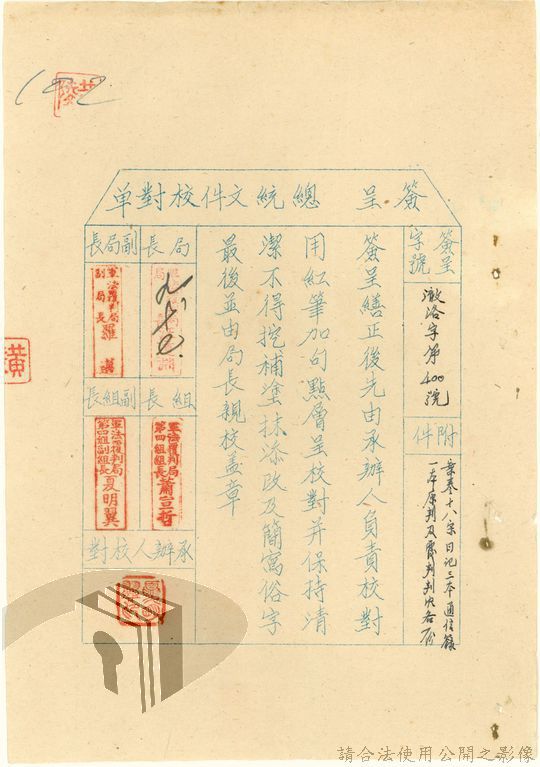 簽呈 總統文件校對单
簽呈字號
澈洛字第400號
附件
案卷十八宗日記三本通信錄
一本原判及覆判判決各一份
簽呈繕正後先由承辦人負責校對
用紅筆加句點層呈校對并保持清
潔不得挖補塗抹添改及簡寫俗字
最後並由局長親校盖章
局長
副局長
軍法覆判局
副局長羅
組長
軍法覆判局
第四組組長蕭宣哲
副組長
軍法覆判局
第四組副組長夏明翼
承辦人校對
黃
請合法使用公開之影像